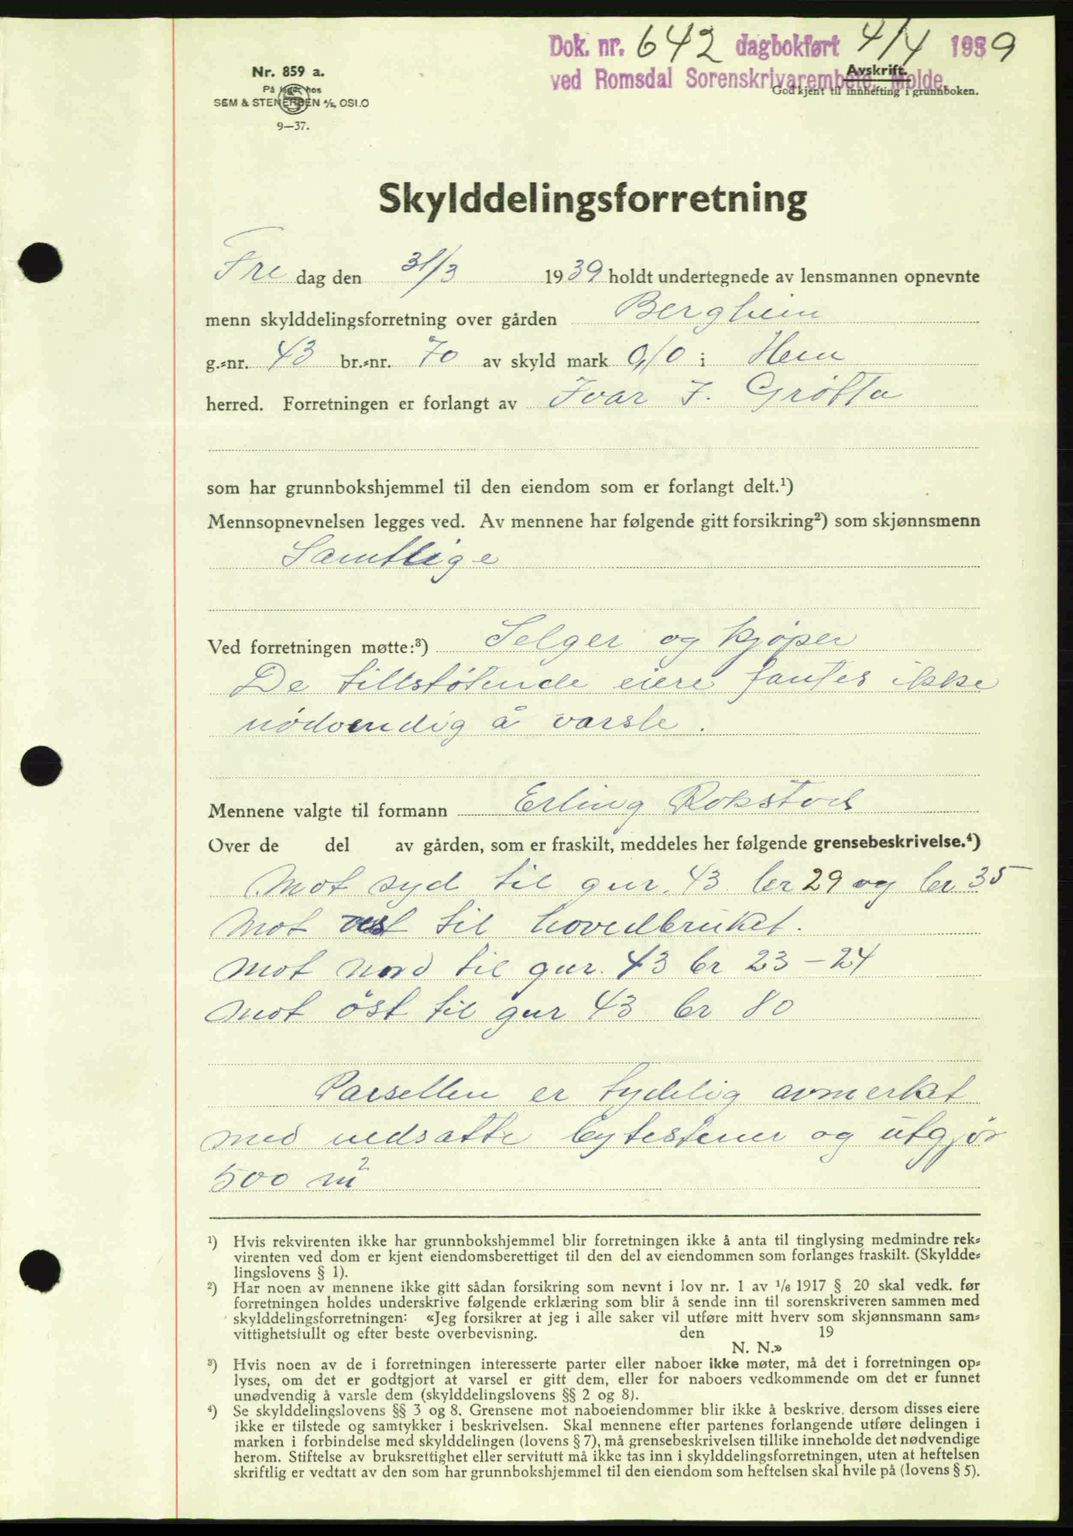 Dok. nr. 642 dagbokført 4/4 1939
ved Romsdal Sorenskrivarembete, Molde.
Nr. 859 a.
På lager hos
SEM & STENERSEN A/S, OSLO
9—37.
Avskrift.
Godkjent til innhefting i grunnboken.
Skylddelingsforretning
Fre dag den 31/3 1939 holdt undertegnede av lensmannen opnevnte
menn skylddelingsforretning over gården Bergheim
g.-nr. 43 br.-nr. 70 av skyld mark 0,10 i Hen
herred. Forretningen er forlangt av Ivar J. Grøtta
som har grunnbokshjemmel til den eiendom som er forlangt delt.¹)
Mennsopnevnelsen legges ved. Av mennene har følgende gitt forsikring²) som skjønnsmenn
Samtlige
Ved forretningen møtte:³) Selger og kjøper
De tillstøtende eiere fantes ikke
nödvendig å varsle.
Mennene valgte til formann Erling Rokstad
Over de del av gården, som er fraskilt, meddeles her følgende grensebeskrivelse.⁴)
Mot syd til gnr. 43 br 29 og br 35
Mot vest til hovedbruket.
Mot nord til gnr. 43 br 23 – 24
Mot öst til gnr 43 br 80
Parsellen er tydelig avmerket
med nedsatte bytestener og utgjør
500 m²
¹) Hvis rekvirenten ikke har grunnbokshjemmel blir forretningen ikke å anta til tinglysing medmindre rek-
virenten ved dom er kjent eiendomsberettiget til den del av eiendommen som forlanges fraskilt. (Skyldde-
lingslovens § 1).
²) Har noen av mennene ikke gitt sådan forsikring som nevnt i lov nr. 1 av 1/6 1917 § 20 skal vedk. før
forretningen holdes underskrive følgende erklæring som blir å sende inn til sorenskriveren sammen med
skylddelingsforretningen: «Jeg forsikrer at jeg i alle saker vil utføre mitt hverv som skjønnsmann sam-
vittighetsfullt og efter beste overbevisning. den 19
N. N.»
³) Hvis noen av de i forretningen interesserte parter eller naboer ikke møter, må det i forretningen op-
lyses, om det er godtgjort at varsel er gitt dem, eller for naboers vedkommende om det er funnet
unødvendig å varsle dem (skylddelingslovens §§ 2 og 8).
⁴) Se skylddelingslovens §§ 3 og 8. Grensene mot naboeiendommer blir ikke å beskrive, dersom disses eiere
ikke er tilstede og samtykker i beskrivelsen. Skal mennene efter partenes forlangende utføre delingen i
marken i forbindelse med skylddelingen (lovens § 7), må grensebeskrivelsen tillike inneholde det nødvendige
herom. Stiftelse av bruksrettighet eller servitutt må ikke tas inn i skylddelingsforretningen, uten at heftelsen
skriftlig er vedtatt av den som har grunnbokshjemmel til den eiendom som heftelsen skal hvile på (lovens § 5).